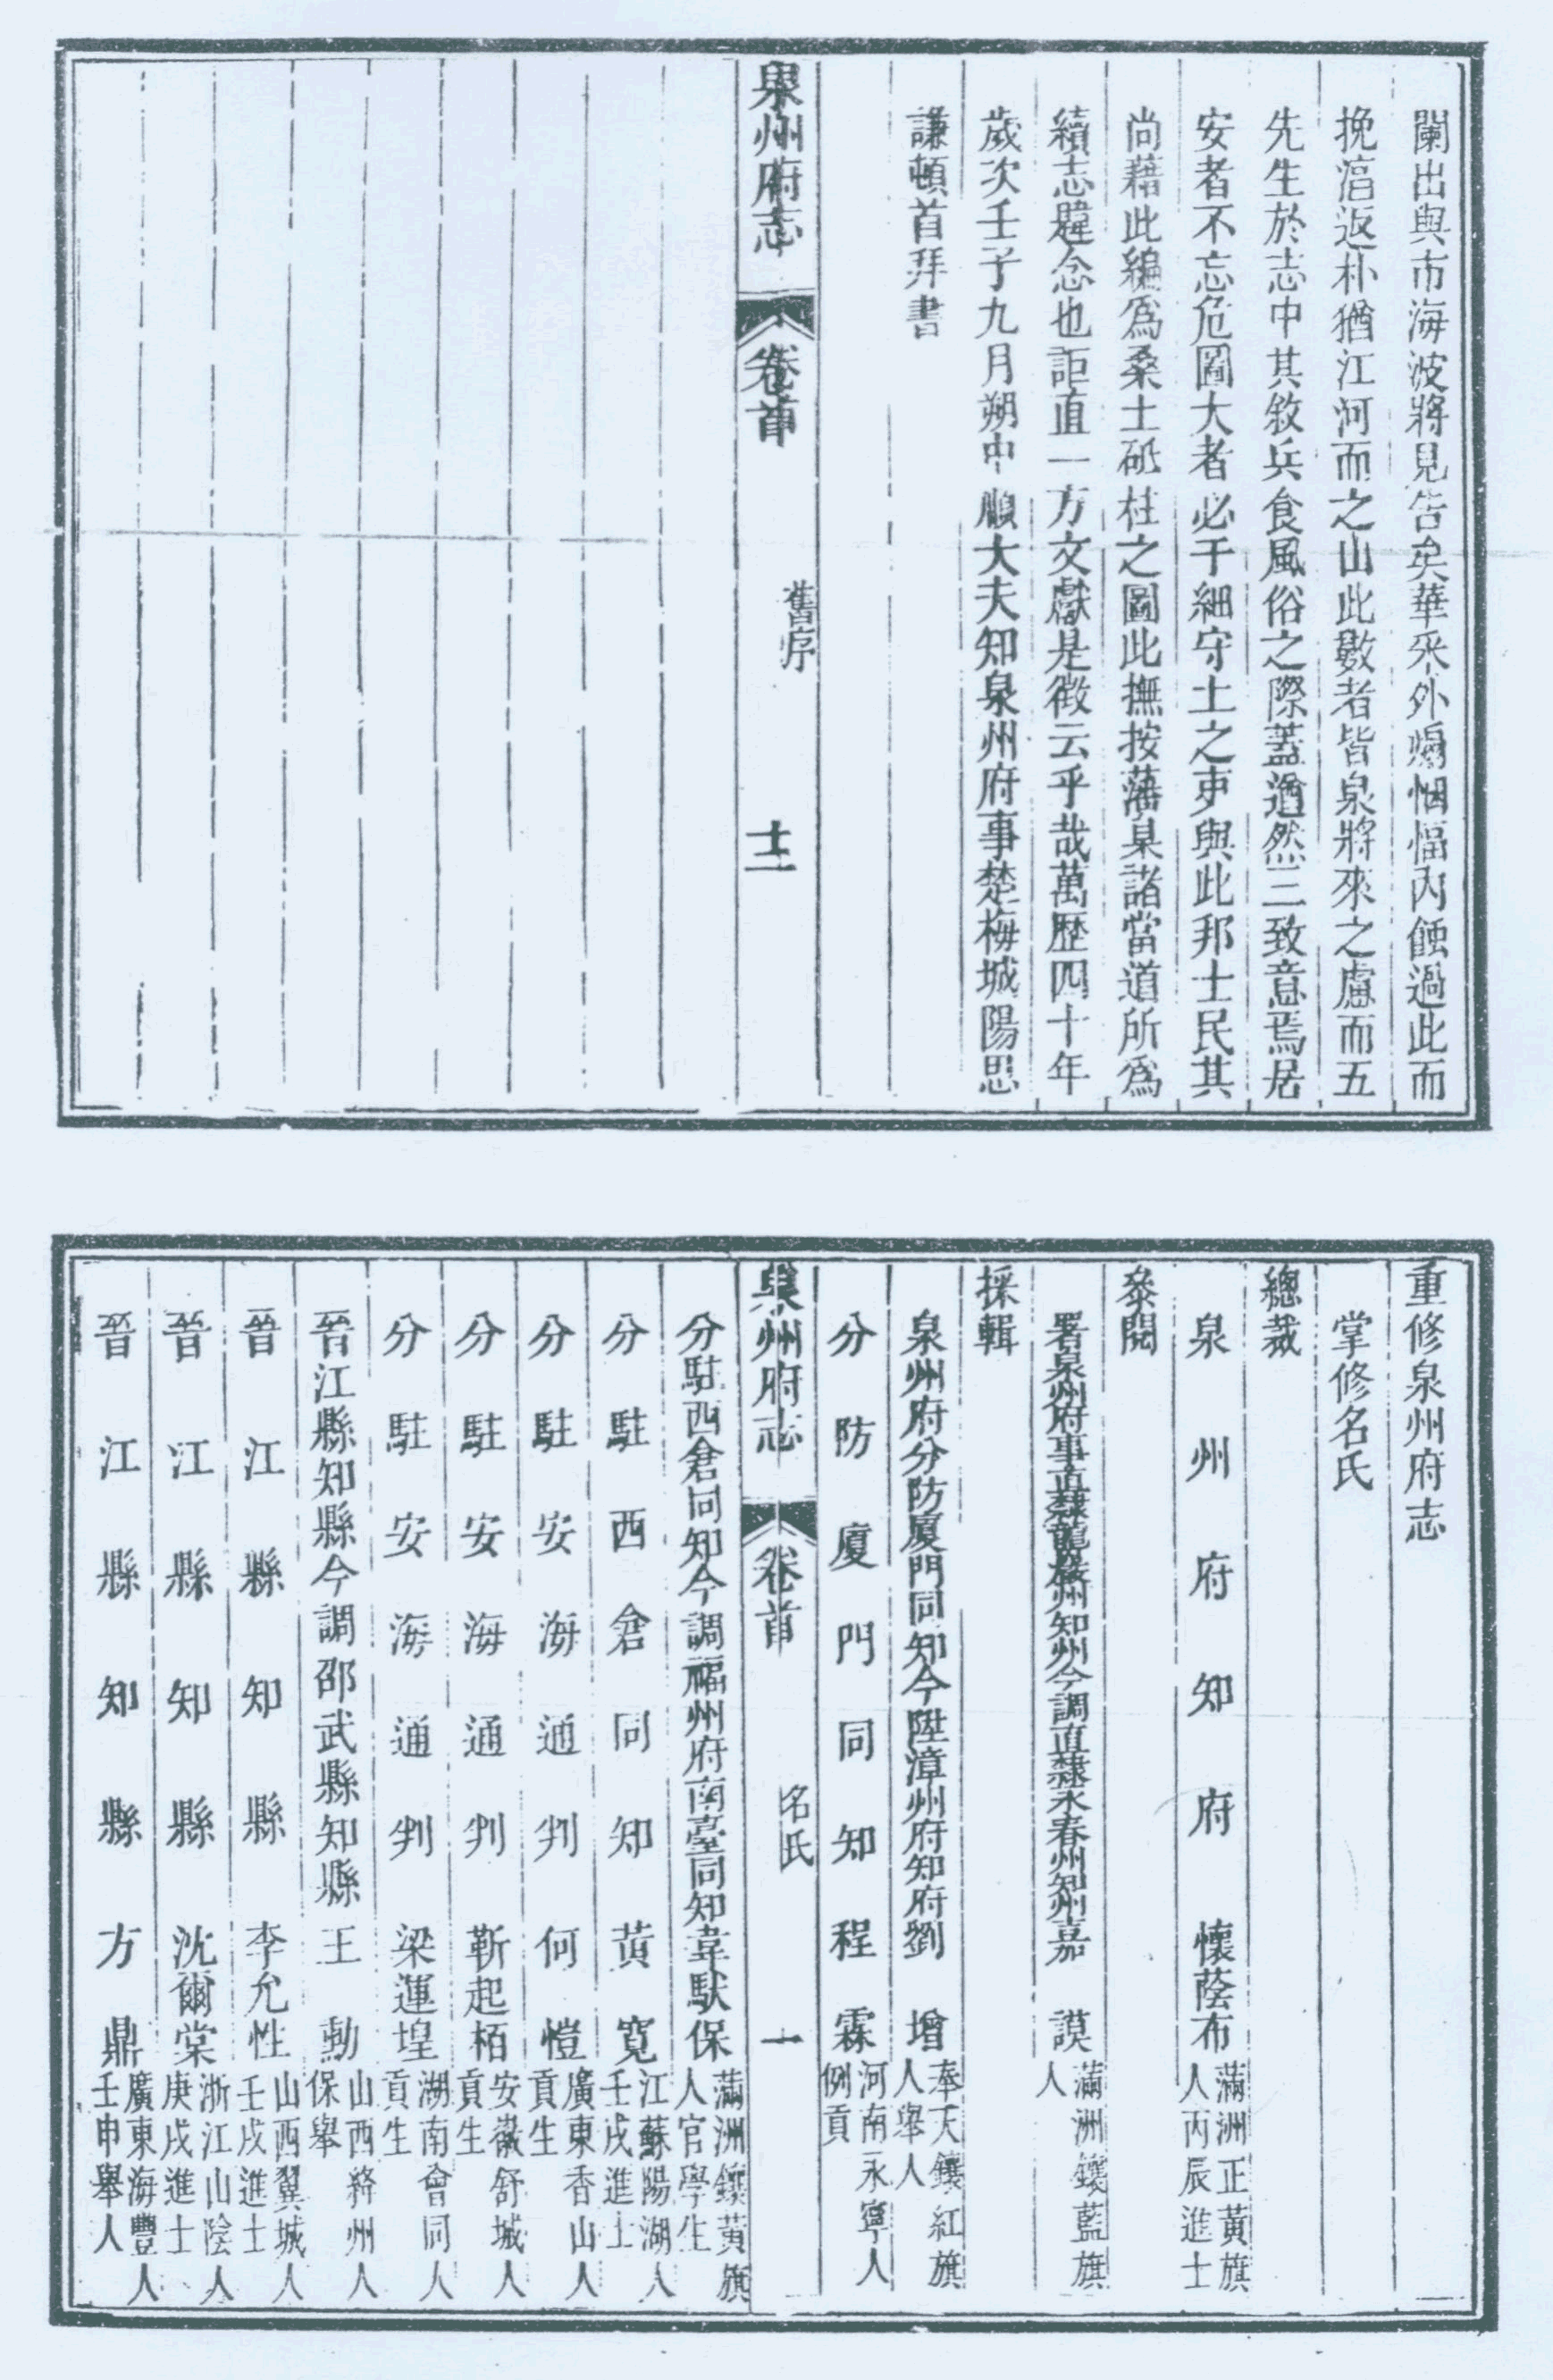 闌出與市海波將見告矣華采外煽悃愊內蝕過此而
挽滔返朴猶江河而之山此數者皆泉將來之慮而五
先生於志中其敘兵食風俗之際蓋遒然三致意焉居
安者不忘危圖大者必于細守土之吏與此邦士民其
尚藉此編爲桑土砥柱之圖此撫按藩臬諸當道所爲
續志韙念也詎直一方文獻是徵云乎哉萬歷四十年
歲次壬子九月朔中順大夫知泉州府事楚梅城陽思
謙頓首拜書
泉州府志 卷首 舊序 十二
重修泉州府志
掌修名氏
總裁
泉州府知府懷蔭布 滿洲正黃旗人丙辰進士
叅閱
署泉州府事直隸龍巖州知州今調直隸永春州知州嘉謨 滿洲鑲藍旗人
採輯
泉州府分防廈門同知今陞漳州府知府劉增 奉天鑲紅旗人舉人
分防廈門同知程霖 河南永寧人例貢
泉州府志 卷首 名氏 一
分駐西倉同知今調福州府南臺同知韋馱保 滿洲鑲黃旗人官學生
分駐西倉同知黃寬 江蘇陽湖人壬戌進士
分駐安海通判何愷 廣東香山人貢生
分駐安海通判靳起栢 安徽舒城人貢生
分駐安海通判梁運堭 湖南會同人貢生
晉江縣知縣今調邵武縣知縣王勳 山西絳州人保舉
晉江縣知縣李允性 山西翼城人壬戌進士
晉江縣知縣沈爾棠 浙江山陰人庚戌進士
晉江縣知縣方鼎 廣東海豐人壬申舉人